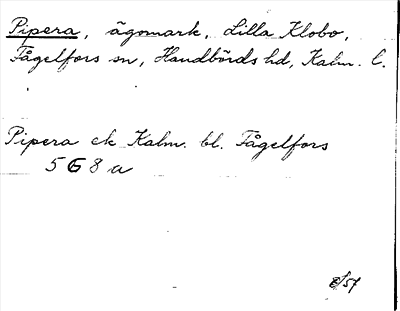 Pipera, ägomark, Lilla Klobo,
Fågelfors sn, Handbörds hd, Kalm. l.
Pipera ek Kalm. bl. Fågelfors
568a